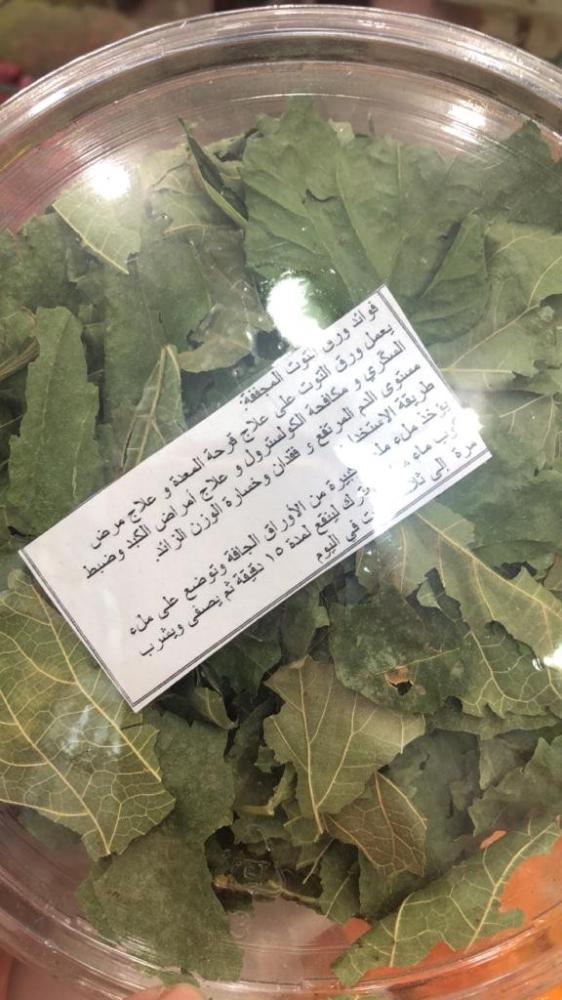 فوائد ورق التوت المجففة:
يعمل ورق التوت على علاج قرحة المعدة و علاج مرض
السكري و مكافحة الكولسترول و علاج أمراض الكبد وضبط
مستوى الدم المرتفع و فقدان وخسارة الوزن الزائد.
طريقة الاستخدا
يؤخذ ملء من الأوراق الجافة وتوضع على ملء
كوب ماء ليتقع لمدة ١٥ دقيقة ثم يصفى ويشرب
مرة إلى في اليوم